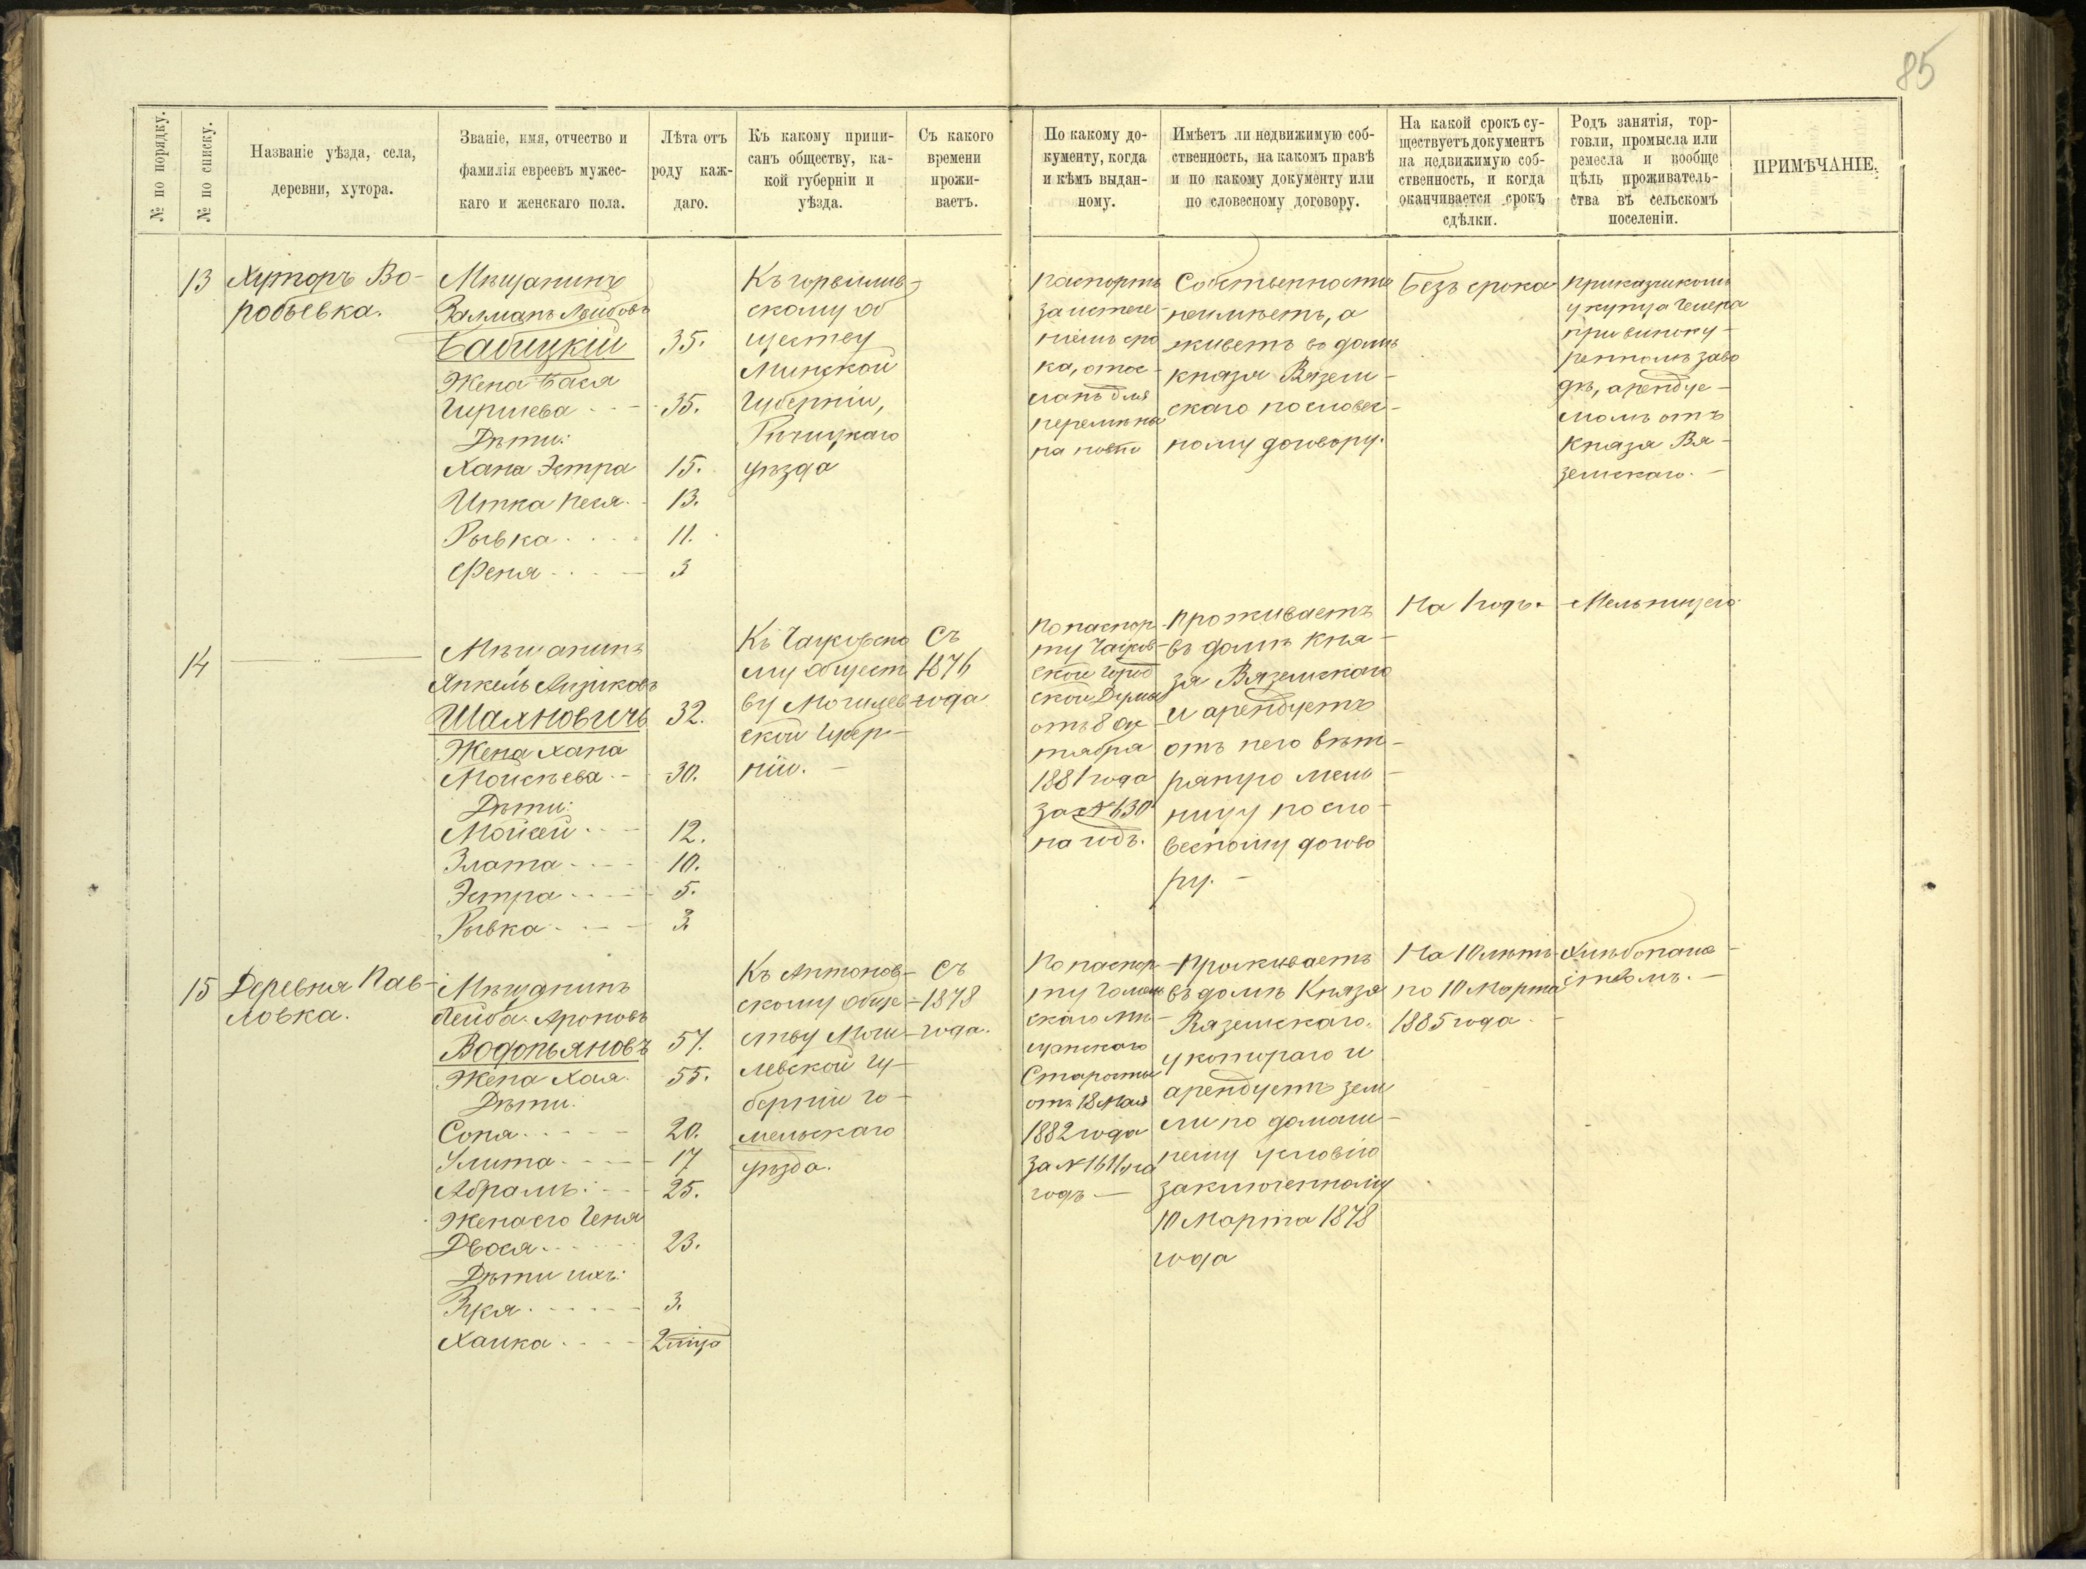 85
№ по порядку.
№ по списку.
Названіе уѣзда, села,
деревни, хутора.
Званіе, имя, отчество и
фамилія евреевъ мужес-
каго и женскаго пола.
Лѣта отъ
роду каж-
даго.
Къ какому припи-
санъ обществу, ка-
кой губерніи и
уѣзда.
Съ какого
времени
прожи-
ваетъ.
По какому до-
кументу, когда
и кѣмъ выдан-
ному.
Имѣетъ ли недвижимую соб-
ственность, на какомъ правѣ
и по какому документу или
по словесному договору.
На какой срокъ су-
ществуетъ документъ
на недвижимую соб-
ственность, и когда
оканчивается срокъ
сдѣлки.
Родъ занятія, тор-
говли, промысла или
ремесла и вообще
цѣль проживатель-
ства въ сельскомъ
поселеніи.
ПРИМѢЧАНІЕ.
13
Хуторъ Во-
робьевка.
Мѣщанинъ
Залманъ Лейбовъ
Бабицкій 35.
Жена Бася
Гиршева 35.
Дѣти:
Хана Эстра 15.
Итка Песя 13.
Рывка 11.
Феня 3
Къ
скому об
ществу
Минской
Губерніи,
Рѣчицкаго
уѣзда
Паспортъ
за истече-
ніемъ сро
ка, отос-
ланъ для
перемѣны
на новый
Собственности
неимѣетъ, а
живетъ въ домѣ
князя Вяземс-
скаго по словес-
ному договору.
Безъ срока
Приказчикомъ
у купца
при виноку-
ренномъ заво
дѣ, арендуе-
момъ отъ
Князя Вя-
земскаго.
14
—— " ——
Мѣщанинъ
Янкель Айзиковъ
Шаяновичъ 32.
Жена Хана
Моисѣева 30.
Дѣти:
Мойсей 12.
Злата 10.
Эстра 5.
Рывка 3
Къ Чаусовско
му Общест
ву Могилев
ской Губер-
ніи.
Съ
1876
года
По паспор
ту Чаусов-
ской Город
ской Думы
отъ 8 Ок
тября
1881 года
за № 630
на годъ.
Проживаетъ
въ домѣ Кня-
зя Вяземскаго
и арендуетъ
отъ него вѣт-
ряную мель-
ницу по сло-
весному догово
ру.
На 1 годъ.
Мельницею
15
Деревня Пав-
ловка.
Мѣщанинъ
Лейба Ароновъ
Водопьяновъ 57.
Жена Хая 55.
Дѣти:
Соня 20.
Улита 17
Абрамъ 25.
Жена его Геня
Двося 23.
Дѣти ихъ:
3.
Хаика 2 мѣца
Къ Антонов-
скому Обще-
ству Моги-
левской гу-
берніи Го-
мельскаго
уѣзда.
Съ
1878
года.
По паспор
ту Гомель
скаго Мѣ-
щанскаго
Старосты
отъ 18 Мая
1882 года
за № 1611 на
годъ —
Проживаетъ
въ домѣ Князя
Вяземскаго,
у котораго и
арендуетъ зем
ли по домаш-
нему условію
заключенному
10 Марта 1878
года
На 10 лѣтъ
по 10 Марта
1885 года
Хлѣбопаше-
ствомъ.